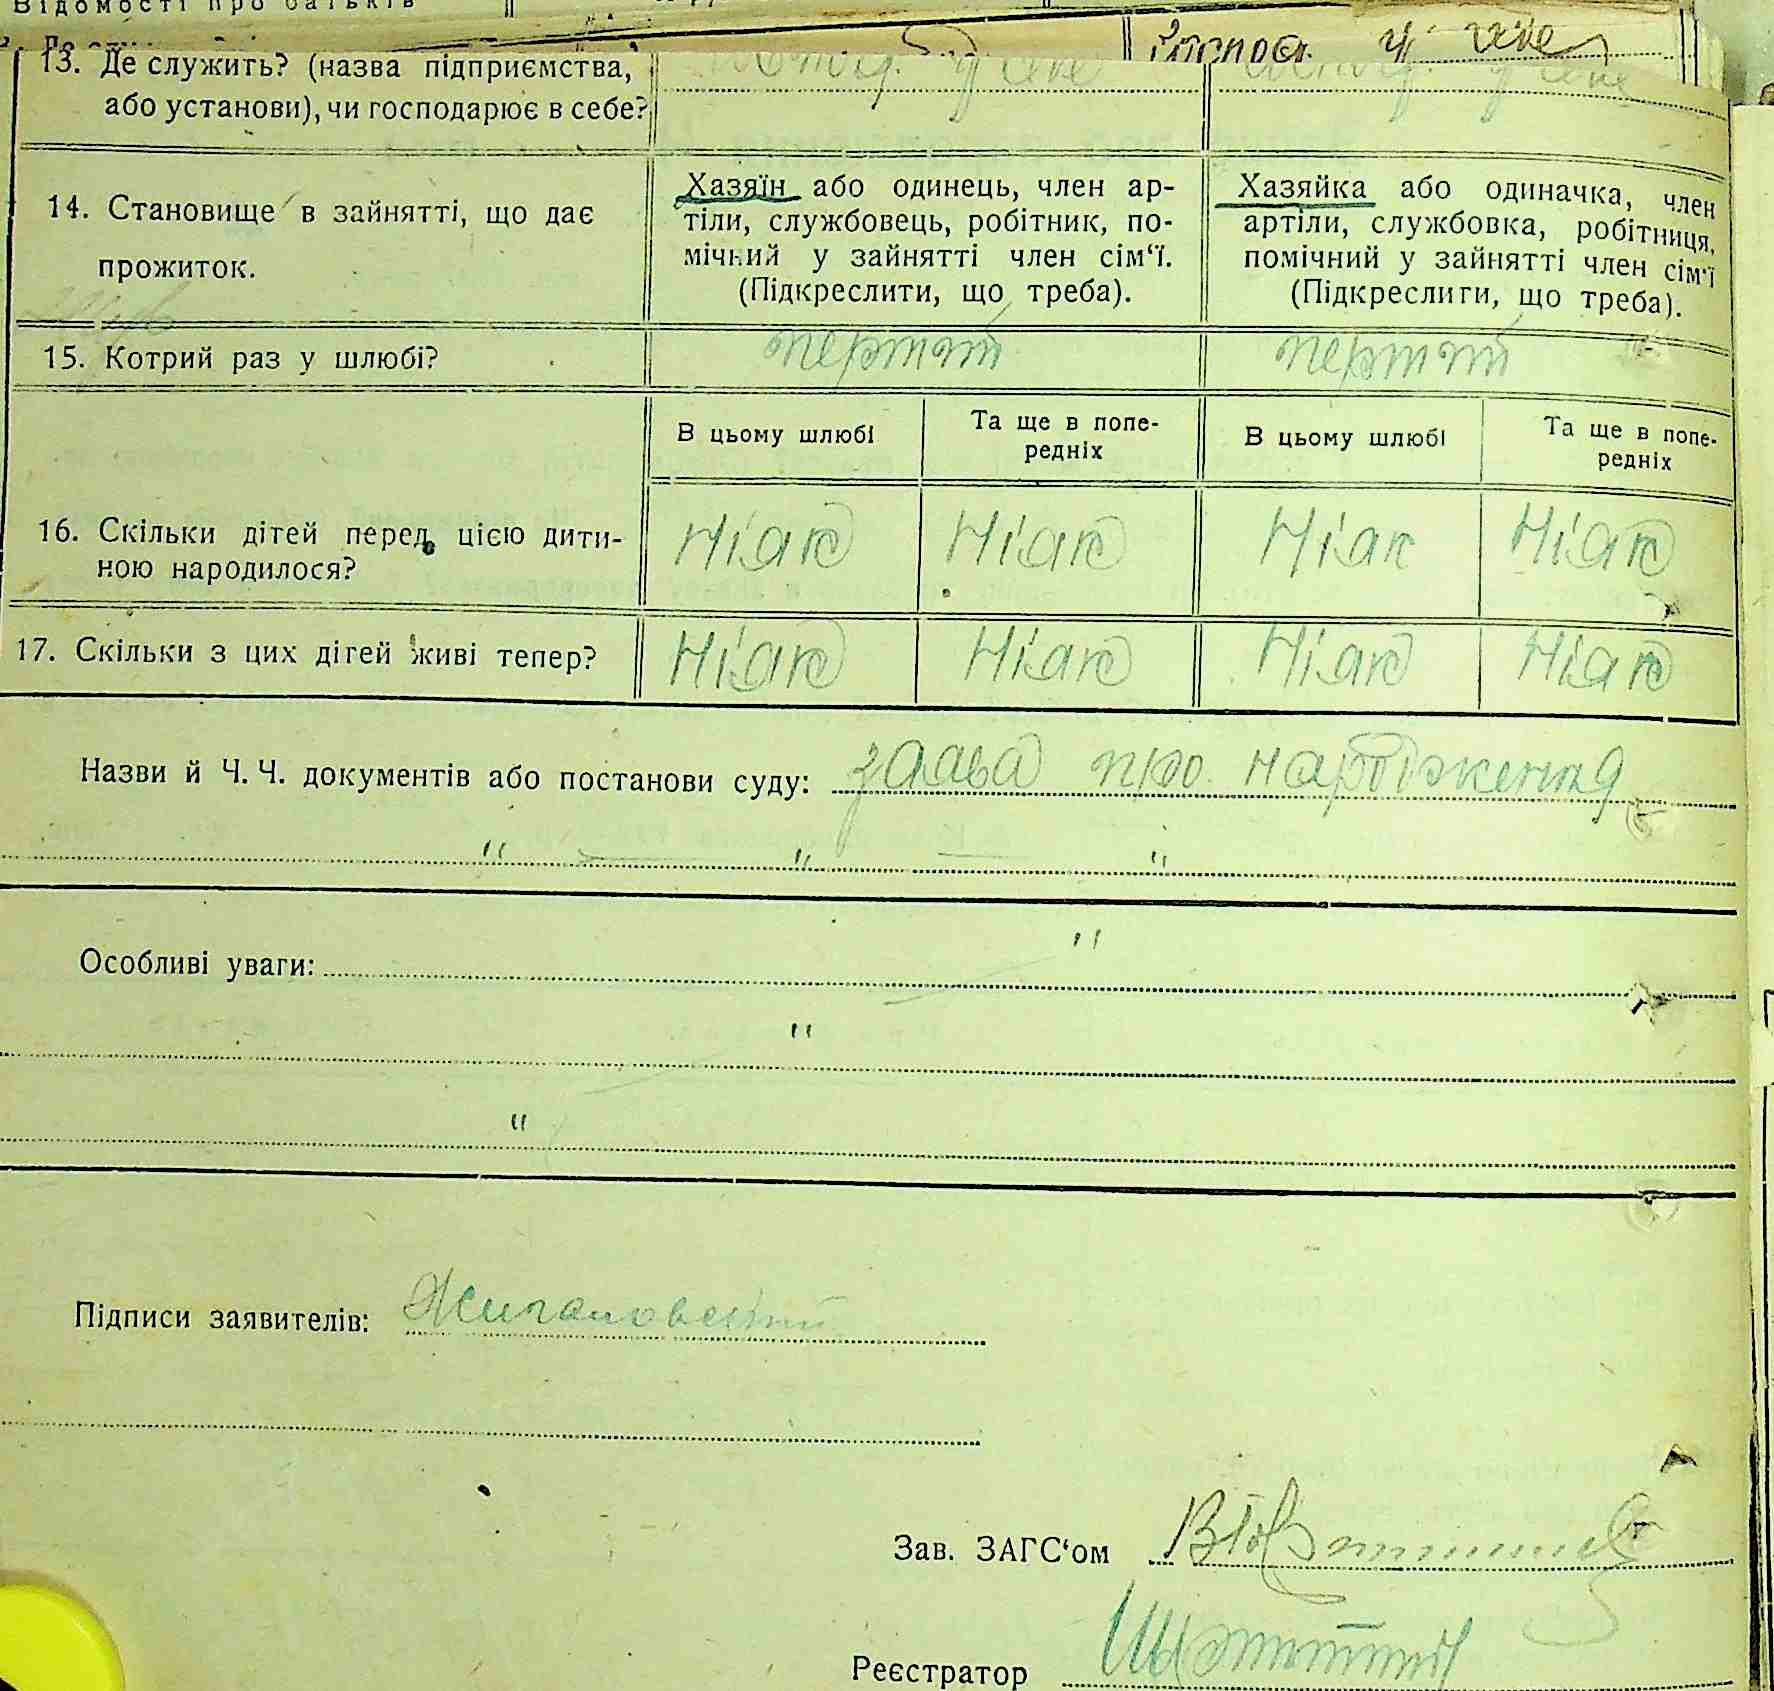 Відомості про батьків
господ. у себе
13. Де служить? (назва підприємства, або установи), чи господарює в себе?
господ. у себе
господ. у себе
14. Становище в зайнятті, що дає прожиток.
Хазяїн або одинець, член ар-
тіли, службовець, робітник, по-
мічний у зайнятті член сім‘ї.
(Підкреслити, що треба).
Хазяйка або одиначка, член
артіли, службовка, робітниця,
помічний у зайнятті член сім‘ї
(Підкреслити, що треба).
15. Котрий раз у шлюбі?
перший
перший
В цьому шлюбі
Та ще в попе-
редніх
В цьому шлюбі
Та ще в попе-
редніх
16. Скільки дітей перед цією дити-
ною народилося?
Ніяк
Ніяк
Ніяк
Ніяк
17. Скільки з цих дітей живі тепер?
Ніяк
Ніяк
Ніяк
Ніяк
Назви й Ч. Ч. документів або постанови суду: заява про народження
" " "
Особливі уваги: "
"
"
Підписи заявителів:
Зав. ЗАГС‘ом
Реєстратор